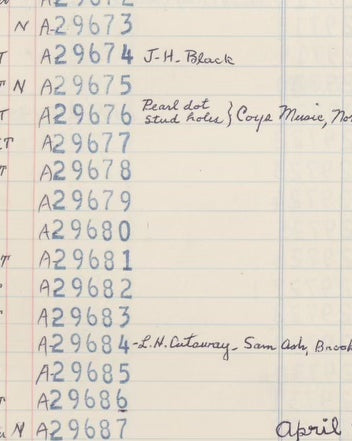 N A29673
T A29674 J-H. Black
T N A29675
T A29676 Pearl dot stud holes } Coyle Music,
T A29677
T A29678
A29679
A29680
T A29681
A29682
A29683
A29684 - L.H. Cutaway - Sam Ash,
A29685
A29686
N A29687 April